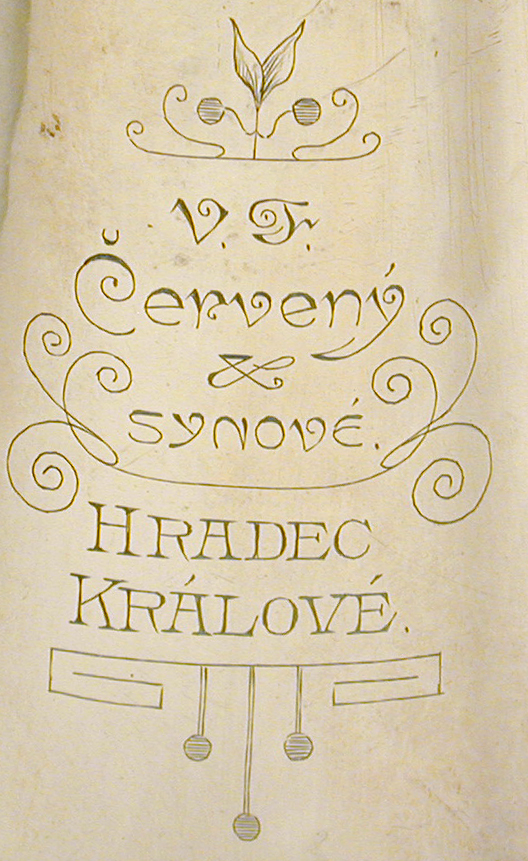 V. F.
Červený
&
SYNOVÉ.
HRADEC
KRÁLOVÉ.